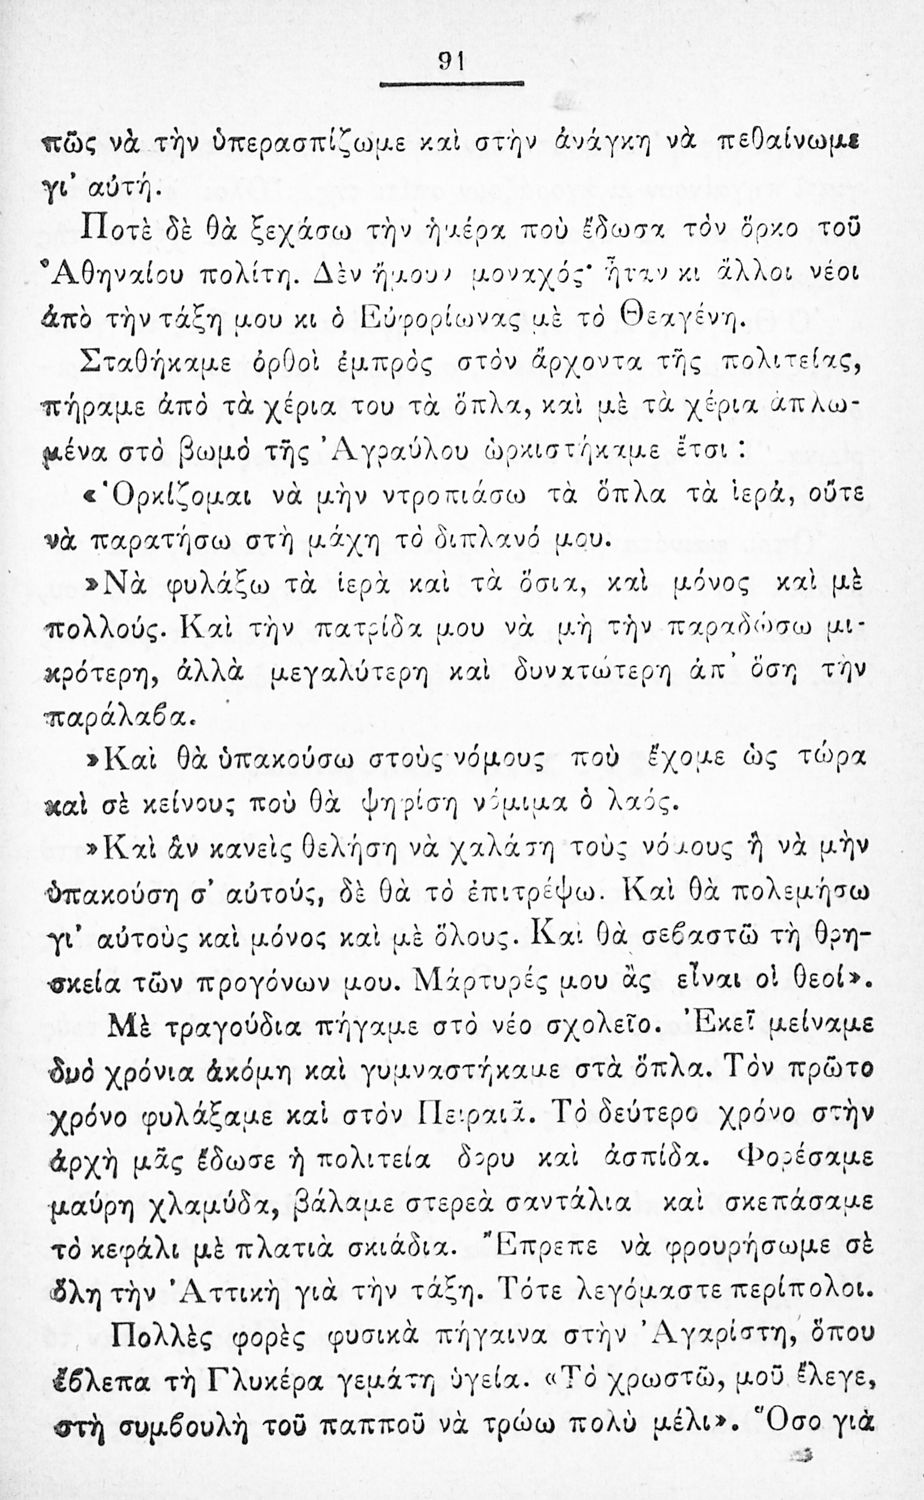 91
πῶς νὰ τὴν ὑπερασπίζωμε καὶ στὴν ἀνάγκη νὰ πεθαίνωμε
γι' αὐτή.
Ποτὲ δὲ θὰ ξεχάσω τὴν ἡμέρα ποὺ ἔδωσα τὸν ὅρκο τοῦ
Ἀθηναίου πολίτη. Δὲν ἤμουν μοναχός· ἦταν κι ἄλλοι νέοι
ἀπὸ τὴν τάξη μου κι ὁ Εὐφορίωνας μὲ τὸ Θεαγένη.
Σταθήκαμε ὀρθοὶ ἐμπρὸς στὸν ἄρχοντα τῆς πολιτείας,
πήραμε ἀπὸ τὰ χέρια του τὰ ὅπλα, καὶ μὲ τὰ χέρια ἁπλω-
μένα στὸ βωμὸ τῆς Ἀγραύλου ὡρκιστήκαμε ἔτσι :
«Ὁρκίζομαι νὰ μὴν ντροπιάσω τὰ ὅπλα τὰ ἱερά, οὔτε
νὰ παρατήσω στὴ μάχη τὸ διπλανό μου.
»Νὰ φυλάξω τὰ ἱερὰ καὶ τὰ ὅσια, καὶ μόνος καὶ μὲ
πολλούς. Καὶ τὴν πατρίδα μου νὰ μὴ τὴν παραδώσω μι-
κρότερη, ἀλλὰ μεγαλύτερη καὶ δυνατώτερη ἀπ' ὅση τὴν
παράλαβα.
»Καὶ θὰ ὑπακούσω στοὺς νόμους ποὺ ἔχομε ὡς τώρα
καὶ σὲ κείνους ποὺ θὰ ψηφίση νόμιμα ὁ λαός.
»Καὶ ἂν κανεὶς θελήση νὰ χαλάση τοὺς νόμους ἢ νὰ μὴν
ὑπακούση σ' αὐτούς, δὲ θὰ τὸ ἐπιτρέψω. Καὶ θὰ πολεμήσω
γι' αὐτοὺς καὶ μόνος καὶ μὲ ὅλους. Καὶ θὰ σεβαστῶ τὴ θρη-
σκεία τῶν προγόνων μου. Μάρτυρές μου ἂς εἶναι οἱ θεοί».
Μὲ τραγούδια πήγαμε στὸ νέο σχολεῖο. Ἐκεῖ μείναμε
δυὸ χρόνια ἀκόμη καὶ γυμναστήκαμε στὰ ὅπλα. Τὸν πρῶτο
χρόνο φυλάξαμε καὶ στὸν Πειραιᾶ. Τὸ δεύτερο χρόνο στὴν
ἀρχὴ μᾶς ἔδωσε ἡ πολιτεία δόρυ καὶ ἀσπίδα. Φορέσαμε
μαύρη χλαμύδα, βάλαμε στερεὰ σαντάλια καὶ σκεπάσαμε
τὸ κεφάλι μὲ πλατιὰ σκιάδια. Ἔπρεπε νὰ φρουρήσωμε σὲ
ὅλη τὴν Ἀττικὴ γιὰ τὴν τάξη. Τότε λεγόμαστε περίπολοι.
Πολλὲς φορὲς φυσικὰ πήγαινα στὴν Ἀγαρίστη, ὅπου
ἔβλεπα τὴ Γλυκέρα γεμάτη ὑγεία. «Τὸ χρωστῶ, μοῦ ἔλεγε,
στὴ συμβουλὴ τοῦ παπποῦ νὰ τρώω πολὺ μέλι». Ὅσο γιὰ